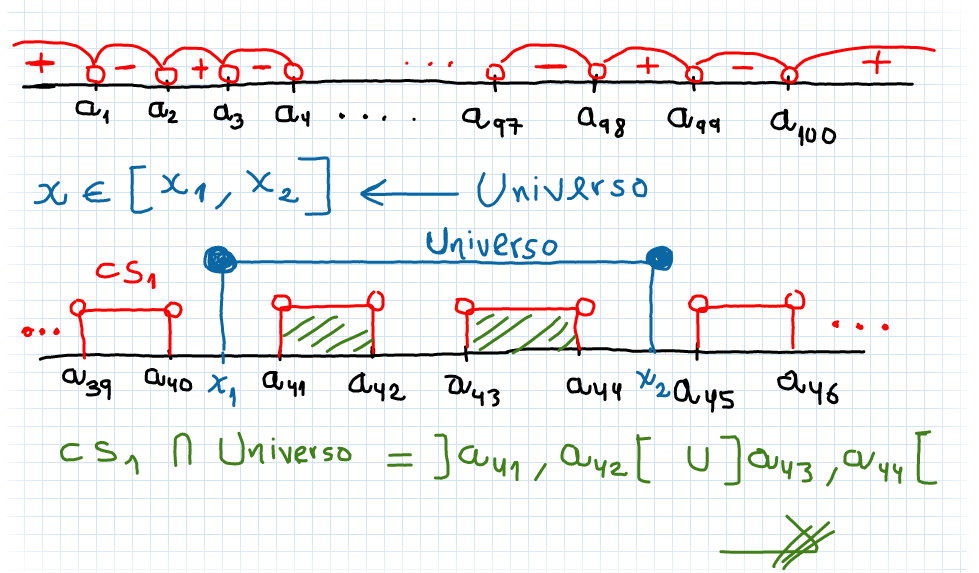 + - + - ... - + - +
a₁ a₂ a₃ a₄ .... a₉₇ a₉₈ a₉₉ a₁₀₀
x ∈ [x₁, x₂] ← Universo
Universo
CS₁
... ...
a₃₉ a₄₀ x₁ a₄₁ a₄₂ a₄₃ a₄₄ x₂ a₄₅ a₄₆
CS₁ ∩ Universo = ]a₄₁, a₄₂[ ∪ ]a₄₃, a₄₄[